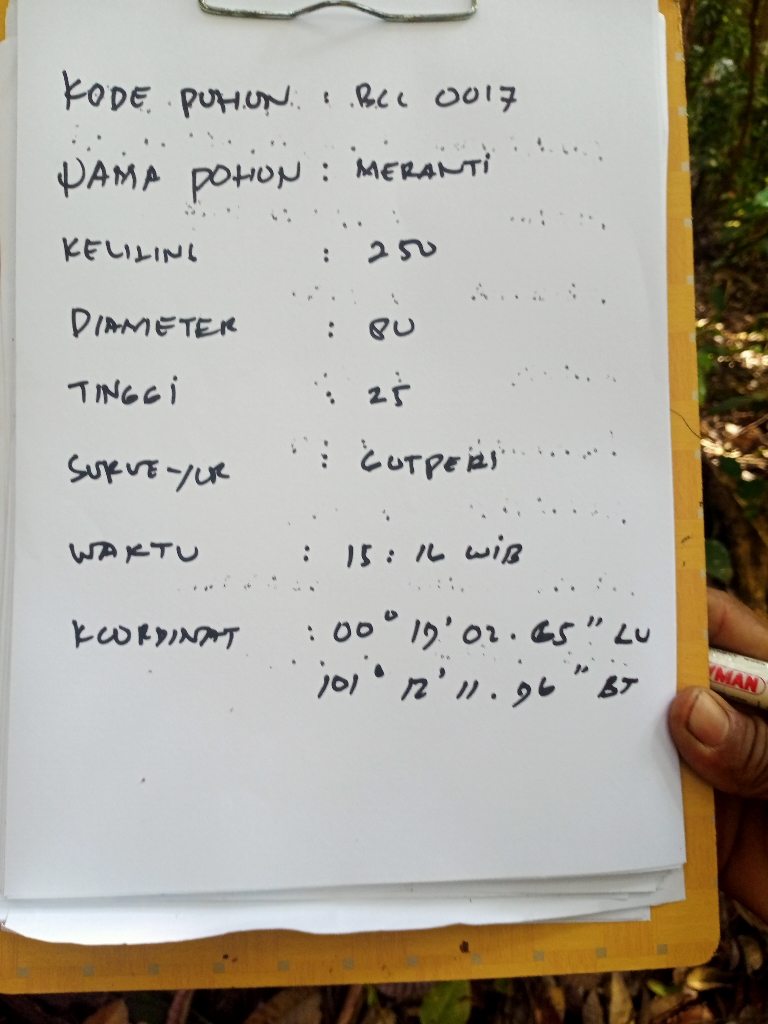 KODE POHON : BCC 0017
NAMA POHON : MERANTI
KELILING : 250
DIAMETER : 80
TINGGI : 25
SURVEYOR : GUTPERI
WAKTU : 15:16 WIB
KOORDINAT : 00° 19' 02.65" LU
101° 12' 11.96" BT
YMAN